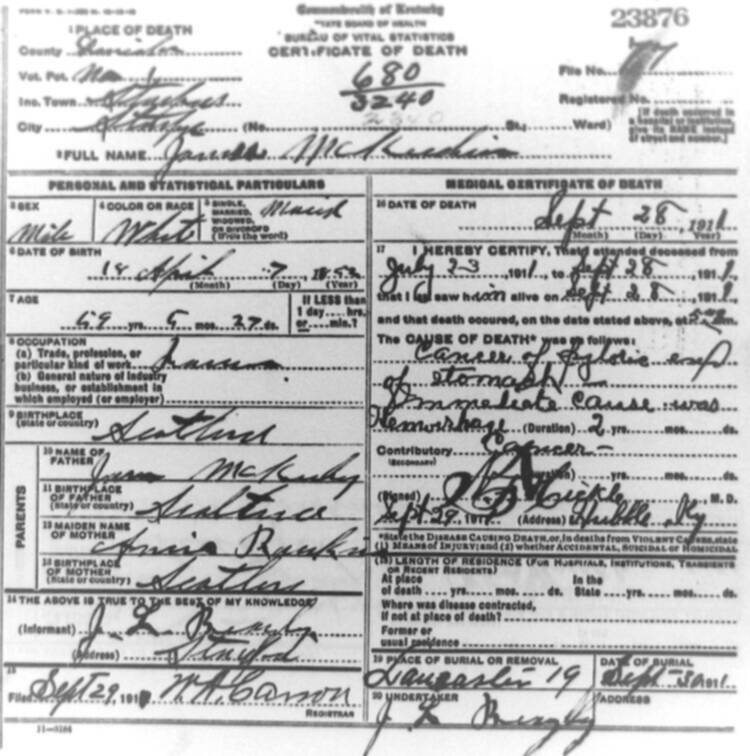 Commonwealth of Kentucky
STATE BOARD OF HEALTH
BUREAU OF VITAL STATISTICS
CERTIFICATE OF DEATH
23876
1 PLACE OF DEATH
County
Vot. Pct.
Inc. Town
City (No. St., Ward)
680
3240
File No. 77
Registered No.
[If death occurred in
a hospital or institution,
give its NAME instead
of street and number.]
2 FULL NAME James
PERSONAL AND STATISTICAL PARTICULARS
3 SEX
Male
4 COLOR OR RACE
White
5 SINGLE,
MARRIED,
WIDOWED,
OR DIVORCED
(Write the word)
6 DATE OF BIRTH
April 7
(Month) (Day) (Year)
7 AGE
59 yrs. 5 mos. 27 ds.
If LESS than
1 day ... hrs.
or ... min.?
8 OCCUPATION
(a) Trade, profession, or
particular kind of work
(b) General nature of industry
business, or establishment in
which employed (or employer)
9 BIRTHPLACE
(State or country) Scotland
PARENTS
10 NAME OF
FATHER
11 BIRTHPLACE
OF FATHER
(State or country) Scotland
12 MAIDEN NAME
OF MOTHER
13 BIRTHPLACE
OF MOTHER
(State or country)
14 THE ABOVE IS TRUE TO THE BEST OF MY KNOWLEDGE
(Informant) J. L.
(Address) Stanford
15
Filed Sept 29, 191 W. A. Carson
REGISTRAR
11-3184
MEDICAL CERTIFICATE OF DEATH
16 DATE OF DEATH
Sept 28, 1911
(Month) (Day) (Year)
17 I HEREBY CERTIFY, That I attended deceased from
July 23 1911, to Sept 28, 1911,
that I last saw him alive on Sept 28, 1911,
and that death occured, on the date stated above, at
The CAUSE OF DEATH* was as follows:
Cancer of Pyloric end
of Stomach
Immediate cause was
Hemorrhage (Duration) 2 yrs. mos. ds.
Contributory Cancer
(SECONDARY)
(Duration) yrs. mos. ds.
(Signed) M. D.
Sept 29, 1911 (Address) Hubble, Ky
*State the DISEASE CAUSING DEATH, or, in deaths from VIOLENT CAUSES, state
(1) MEANS OF INJURY; and (2) whether ACCIDENTAL, SUICIDAL or HOMICIDAL
(18) LENGTH OF RESIDENCE (FOR HOSPITALS, INSTITUTIONS, TRANSIENTS
OR RECENT RESIDENTS)
At place In the
of death yrs. mos. ds. State yrs. mos. ds.
Where was disease contracted,
if not at place of death?
Former or
usual residence
19 PLACE OF BURIAL OR REMOVAL
Lancaster
DATE OF BURIAL
Sept 30 1911
20 UNDERTAKER
J. L.
ADDRESS